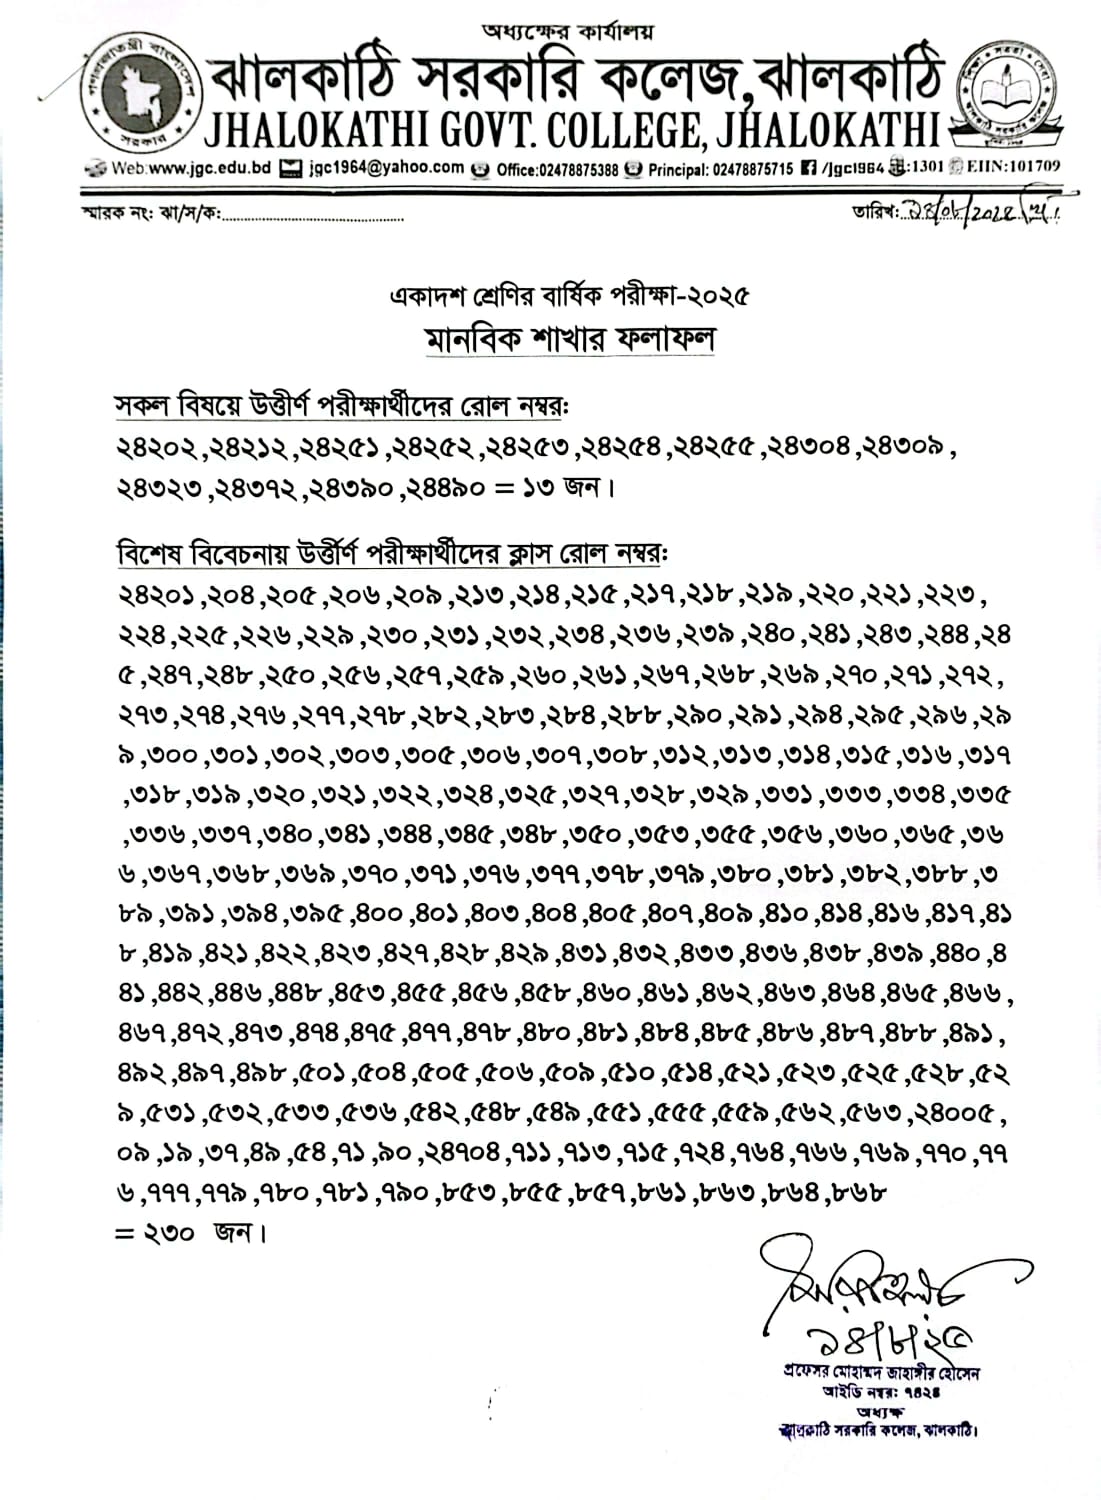 অধ্যক্ষের কার্যালয়
ঝালকাঠি সরকারি কলেজ,ঝালকাঠি
JHALOKATHI GOVT. COLLEGE, JHALOKATHI
Web:www.jgc.edu.bd jgc1964@yahoo.com Office:02478875388 Principal: 02478875715 /Jgc1964 :1301 EIIN:101709
স্মারক নং: ঝা/স/ক:
তারিখ:
একাদশ শ্রেণির বার্ষিক পরীক্ষা-২০২৫
মানবিক শাখার ফলাফল
সকল বিষয়ে উত্তীর্ণ পরীক্ষার্থীদের রোল নম্বর:
২৪২০২,২৪২১২,২৪২৫১,২৪২৫২,২৪২৫৩,২৪২৫৪,২৪২৫৫,২৪৩০৪,২৪৩০৯,
২৪৩২৩,২৪৩৭২,২৪৩৯০,২৪৪৯০ = ১৩ জন।
বিশেষ বিবেচনায় উর্ত্তীর্ণ পরীক্ষার্থীদের ক্লাস রোল নম্বর:
২৪২০১,২০৪,২০৫,২০৬,২০৯,২১৩,২১৪,২১৫,২১৭,২১৮,২১৯,২২০,২২১,২২৩,
২২৪,২২৫,২২৬,২২৯,২৩০,২৩১,২৩২,২৩৪,২৩৬,২৩৯,২৪০,২৪১,২৪৩,২৪৪,২৪
৫,২৪৭,২৪৮,২৫০,২৫৬,২৫৭,২৫৯,২৬০,২৬১,২৬৭,২৬৮,২৬৯,২৭০,২৭১,২৭২,
২৭৩,২৭৪,২৭৬,২৭৭,২৭৮,২৮২,২৮৩,২৮৪,২৮৮,২৯০,২৯১,২৯৪,২৯৫,২৯৬,২৯
৯,৩০০,৩০১,৩০২,৩০৩,৩০৫,৩০৬,৩০৭,৩০৮,৩১২,৩১৩,৩১৪,৩১৫,৩১৬,৩১৭
,৩১৮,৩১৯,৩২০,৩২১,৩২২,৩২৪,৩২৫,৩২৭,৩২৮,৩২৯,৩৩১,৩৩৩,৩৩৪,৩৩৫
,৩৩৬,৩৩৭,৩৪০,৩৪১,৩৪৪,৩৪৫,৩৪৮,৩৫০,৩৫৩,৩৫৫,৩৫৬,৩৬০,৩৬৫,৩৬
৬,৩৬৭,৩৬৮,৩৬৯,৩৭০,৩৭১,৩৭৬,৩৭৭,৩৭৮,৩৭৯,৩৮০,৩৮১,৩৮২,৩৮৮,৩
৮৯,৩৯১,৩৯৪,৩৯৫,৪০০,৪০১,৪০৩,৪০৪,৪০৫,৪০৭,৪০৯,৪১০,৪১৪,৪১৬,৪১৭,৪১
৮,৪১৯,৪২১,৪২২,৪২৩,৪২৭,৪২৮,৪২৯,৪৩১,৪৩২,৪৩৩,৪৩৬,৪৩৮,৪৩৯,৪৪০,৪
৪১,৪৪২,৪৪৬,৪৪৮,৪৫৩,৪৫৫,৪৫৬,৪৫৮,৪৬০,৪৬১,৪৬২,৪৬৩,৪৬৪,৪৬৫,৪৬৬,
৪৬৭,৪৭২,৪৭৩,৪৭৪,৪৭৫,৪৭৭,৪৭৮,৪৮০,৪৮১,৪৮৪,৪৮৫,৪৮৬,৪৮৭,৪৮৮,৪৯১,
৪৯২,৪৯৭,৪৯৮,৫০১,৫০৪,৫০৫,৫০৬,৫০৯,৫১০,৫১৪,৫২১,৫২৩,৫২৫,৫২৮,৫২
৯,৫৩১,৫৩২,৫৩৩,৫৩৬,৫৪২,৫৪৮,৫৪৯,৫৫১,৫৫৫,৫৫৯,৫৬২,৫৬৩,২৪০০৫,
০৯,১৯,৩৭,৪৯,৫৪,৭১,৯০,২৪৭০৪,৭১১,৭১৩,৭১৫,৭২৪,৭৬৪,৭৬৬,৭৬৯,৭৭০,৭৭
৬,৭৭৭,৭৭৯,৭৮০,৭৮১,৭৯০,৮৫৩,৮৫৫,৮৫৭,৮৬১,৮৬৩,৮৬৪,৮৬৮
= ২৩০ জন।
১৪/৮/২৫
প্রফেসর মোহাম্মদ জাহাঙ্গীর হোসেন
আইডি নম্বর: ৭৪২৪
অধ্যক্ষ
ঝালকাঠি সরকারি কলেজ, ঝালকাঠি।